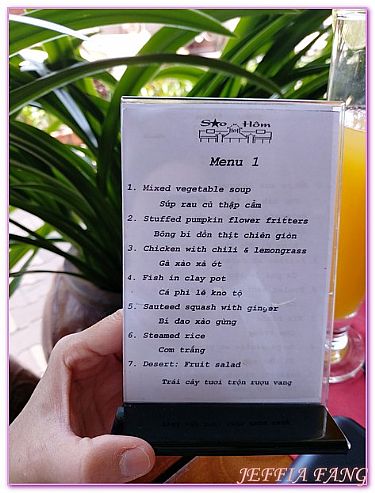 Sao Hôm
Menu 1
1. Mixed vegetable soup
Súp rau củ thập cẩm
2. Stuffed pumpkin flower fritters
Bông bí dồn thịt chiên giòn
3. Chicken with chili & lemongrass
Gà xào xả ớt
4. Fish in clay pot
Cá phi lê kho tộ
5. Sauteed squash with ginger
Bí đao xào gừng
6. Steamed rice
Cơm trắng
7. Desert: Fruit salad
Trái cây tươi trộn rượu vang
JEFFIA FANG